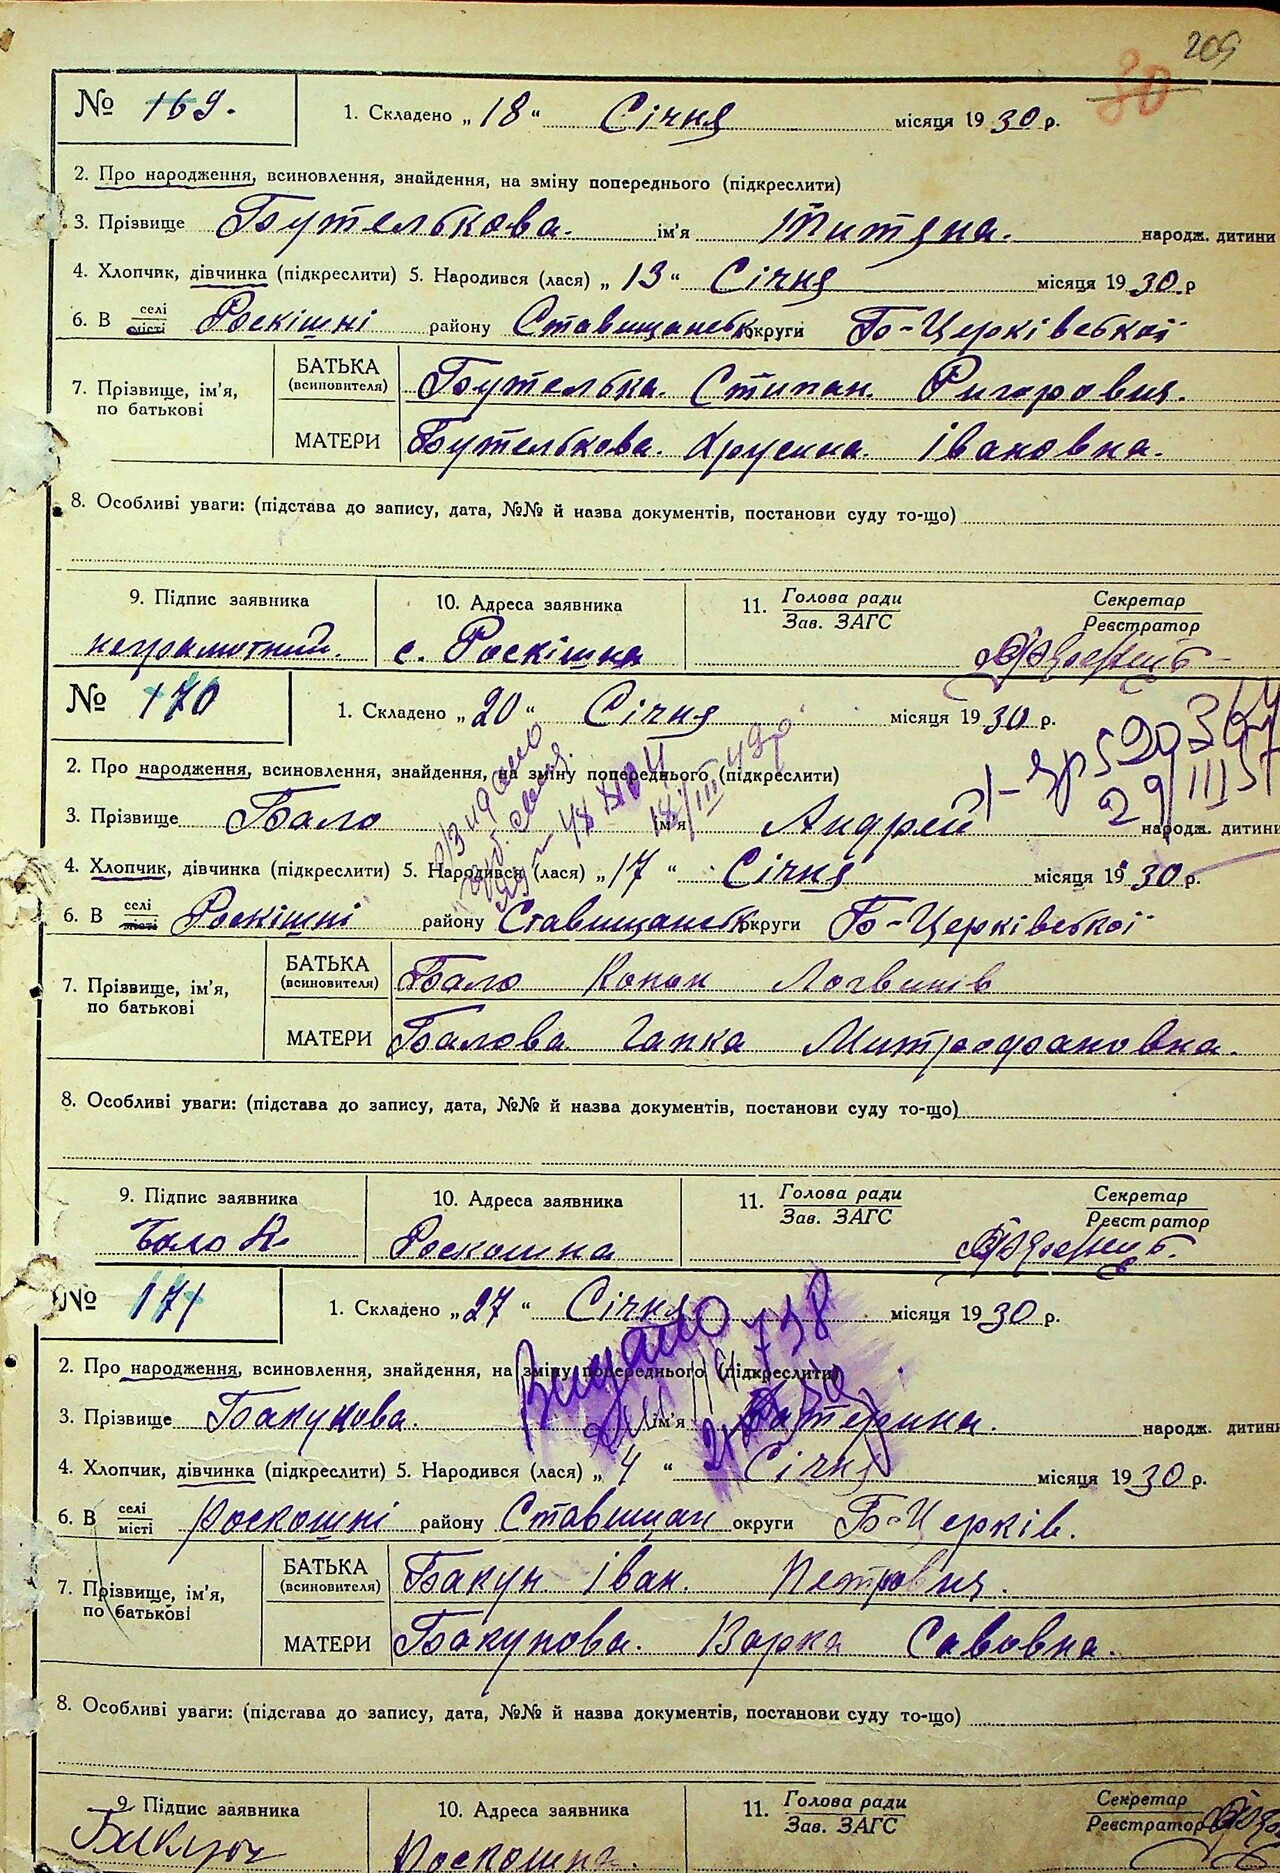 209
30
№ 169.
1. Складено „18“ Січня місяця 1930 р.
2. Про народження, всиновлення, знайдення, на зміну попереднього (підкреслити)
3. Прізвище Бутелькова. ім'я Титяна. народж. дитини
4. Хлопчик, дівчинка (підкреслити) 5. Народився (лася) „13“ Січня місяця 1930 р
6. В селі місті Роскішні району Ставищанськ округи Б-Церківської
7. Прізвище, ім'я, по батькові
БАТЬКА (всиновителя) Бутелька. Стипан. Ригоровия.
МАТЕРИ Бутелькова. Хрусина. Івановна.
8. Особливі уваги: (підстава до запису, дата, №№ й назва документів, постанови суду то-що)
9. Підпис заявника 10. Адреса заявника 11. Голова ради Зав. ЗАГС Секретар Реєстратор
неграмотний. с. Роскішна
№ 170
1. Складено „20“ Січня місяця 1930 р.
2. Про народження, всиновлення, знайдення, на зміну попереднього (підкреслити)
29/III 57
3. Прізвище Бало ім'я Андрей народж. дитини
4. Хлопчик, дівчинка (підкреслити) 5. Народився (лася) „17“ Січня місяця 1930 р.
6. В селі місті Роскішні району Ставищанськ округи Б-Церківської
7. Прізвище, ім'я, по батькові
БАТЬКА (всиновителя) Бало Конон Логвинів
МАТЕРИ Балова Гапка Митрофановна.
8. Особливі уваги: (підстава до запису, дата, №№ й назва документів, постанови суду то-що)
9. Підпис заявника 10. Адреса заявника 11. Голова ради Зав. ЗАГС Секретар Реєстратор
Бало К. Роскошна
№ 171
1. Складено „27“ Січня місяця 1930 р.
Видано
2. Про народження, всиновлення, знайдення, на зміну попереднього (підкреслити)
3. Прізвище Бакунова. ім'я Катерина. народж. дитини
4. Хлопчик, дівчинка (підкреслити) 5. Народився (лася) „4“ Січня місяця 1930 р.
6. В селі місті Роскошні району Ставищан округи Б-Церків.
7. Прізвище, ім'я, по батькові
БАТЬКА (всиновителя) Бакун Іван. Петровия.
МАТЕРИ Бакунова. Варка Савовна.
8. Особливі уваги: (підстава до запису, дата, №№ й назва документів, постанови суду то-що)
9. Підпис заявника 10. Адреса заявника 11. Голова ради Зав. ЗАГС Секретар Реєстратор
Роскошна.